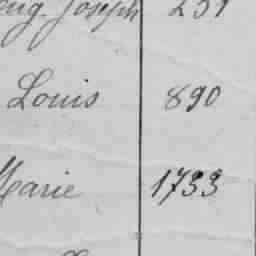 Joseph 251
Louis 890
Marie 1733